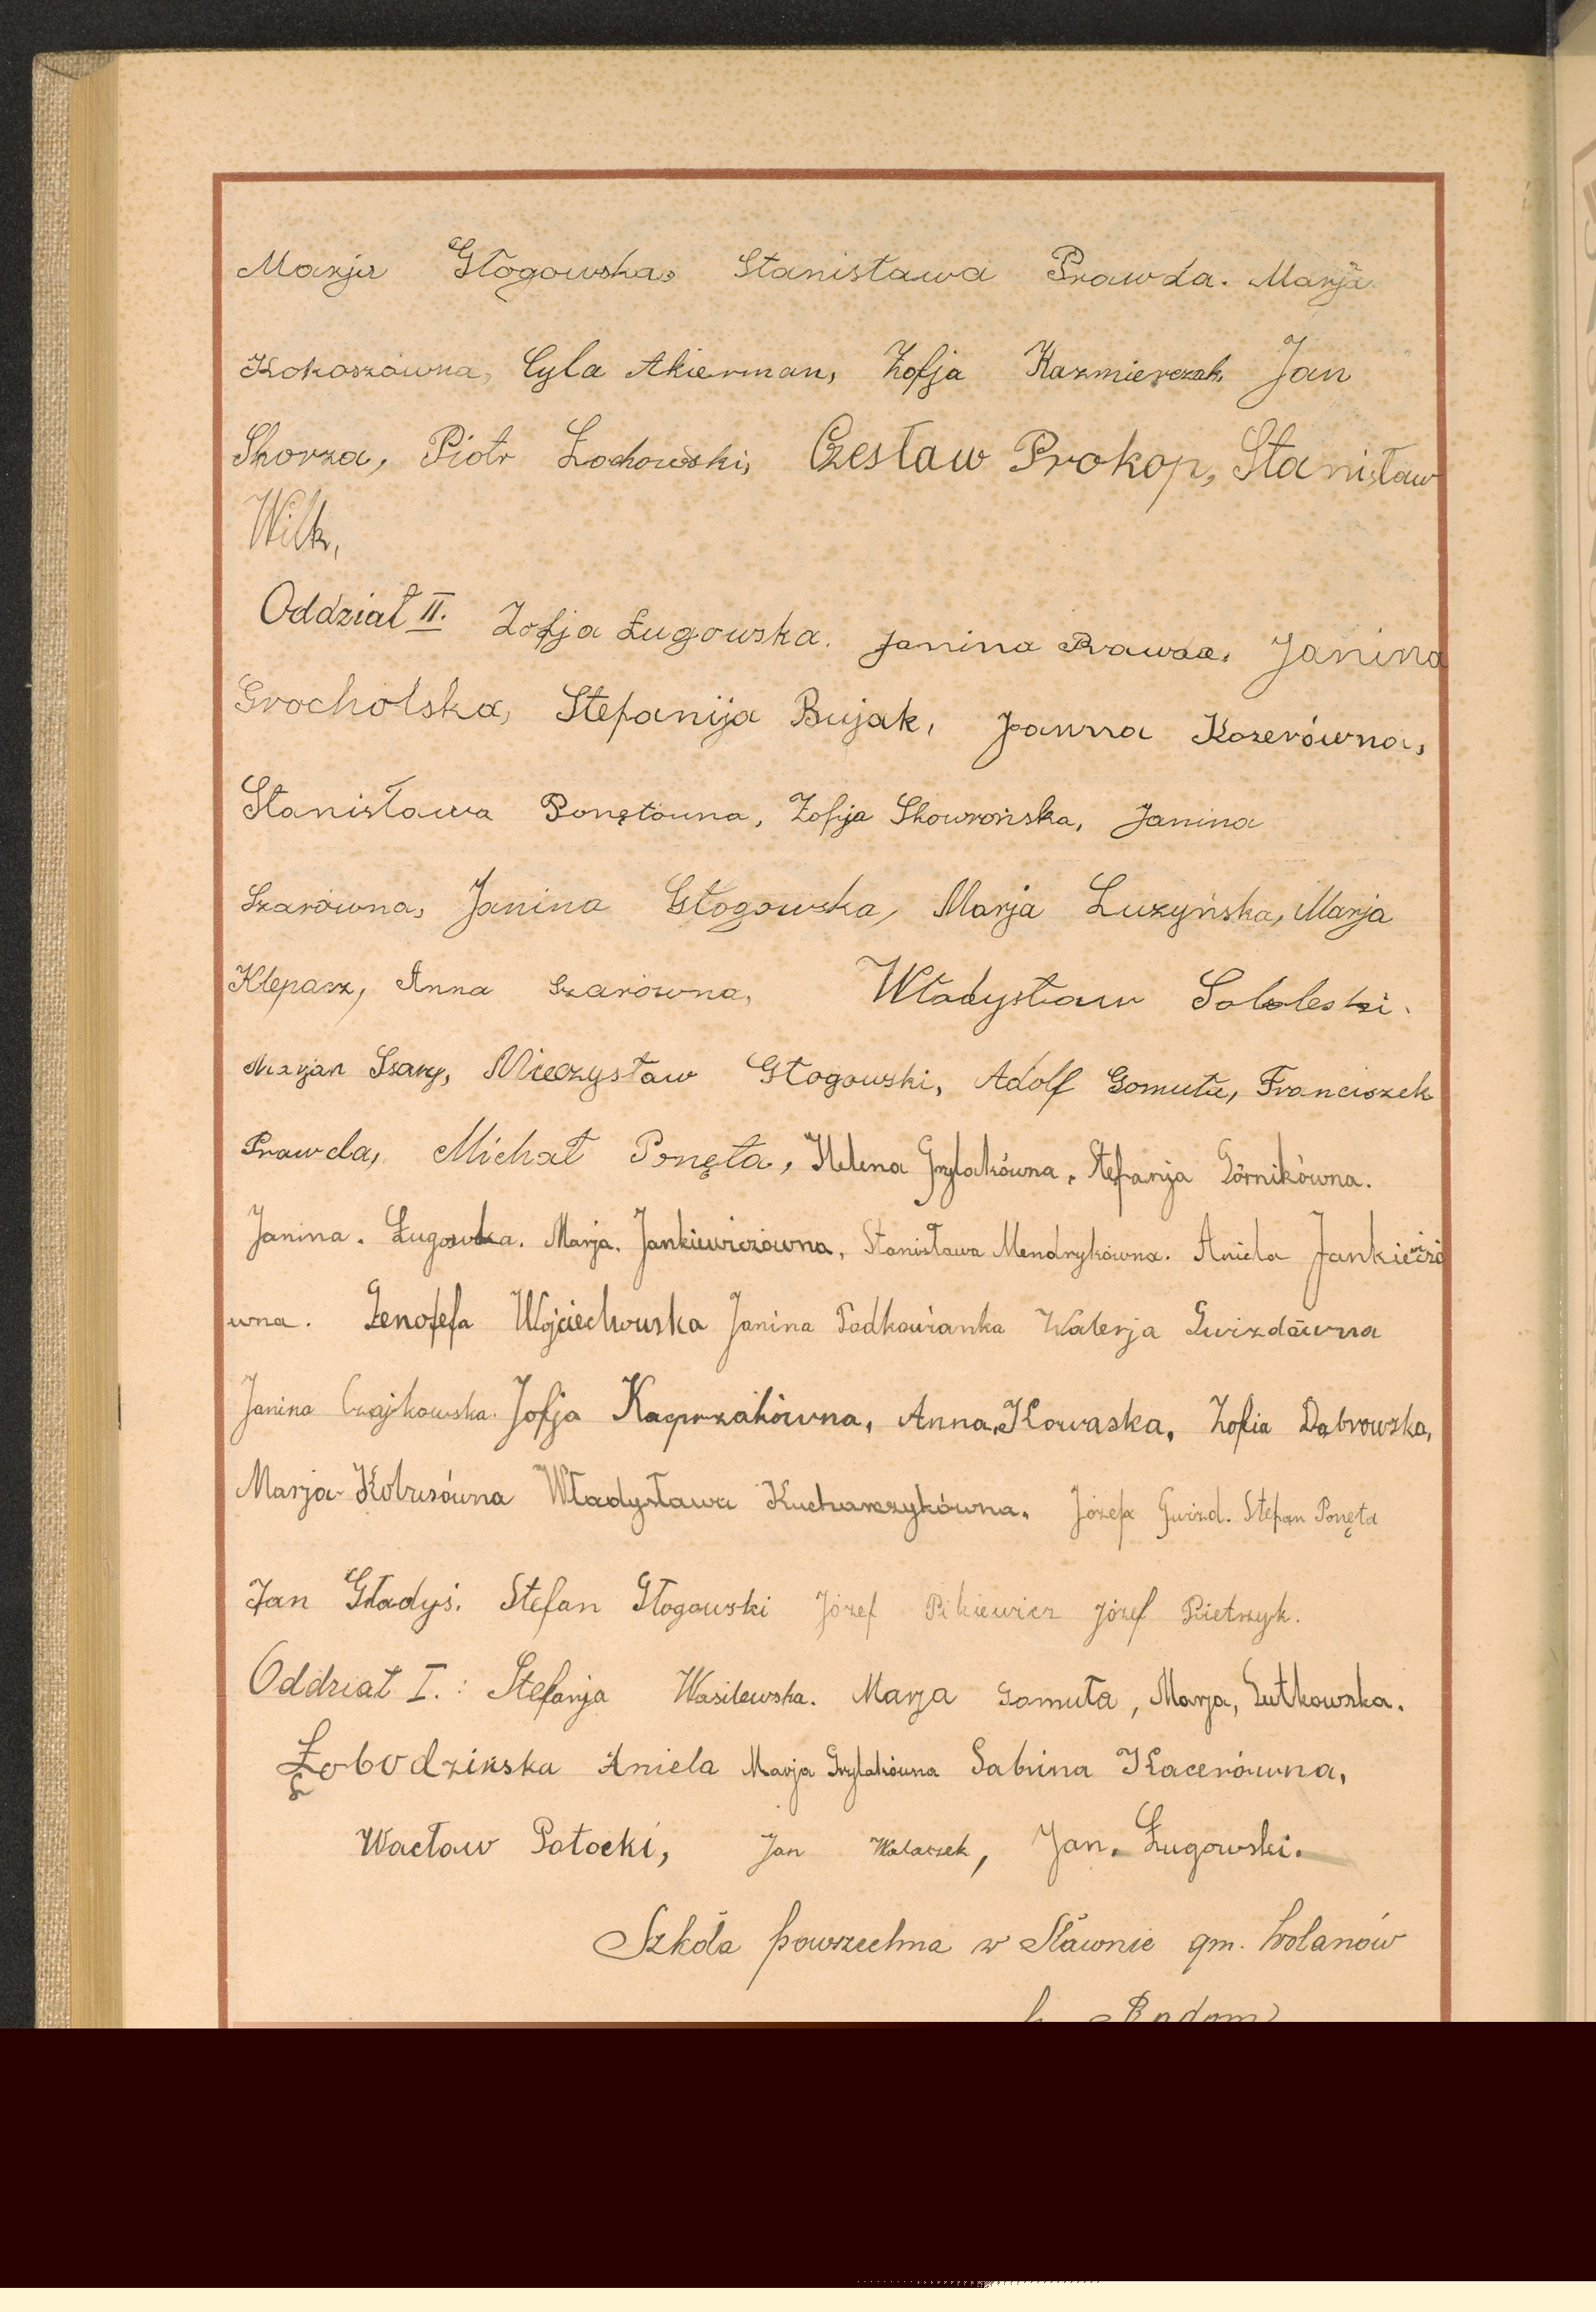 Marja Głogowska, Stanisława Prawda. Marja
Kokoszówna, Cyla Akierman, Zofja Kazmierczak, Jan
Skorza, Piotr Żochowski, Czesław Prokop, Stanisław
Wilk,
Oddział II. Zofja Ługowska. Janina Prawda, Janina
Grocholska, Stefanija Bujak, Joanna Kozerówna,
Stanisława Ponętówna, Zofija Skowrońska, Janina
Szarówna, Janina Głogowska, Marja Łuzyńska, Marja
Klepacz, Anna Szarówna, Władysław Soboleski.
Marjan Szary, Mieczysław Głogowski, Adolf Gomuła, Franciszek
Prawda, Michał Ponęta, Helena Grylakówna, Stefanja Górnikówna.
Janina. Ługowska. Marja. Jankiewiczówna, Stanisława Mendrykówna. Aniela Jankiewiczó
wna. Zenofefa Wojciechowska Janina Podkowianka Walerja Gwizdówna
Janina Czajkowska. Zofja Kacprzakówna, Anna, Kowaska, Zofia Dabrowska,
Marja Kobusówna Władysława Kucharczykówna. Józefa Gwizd. Stefan Ponęta
Jan Gładyś. Stefan Głogowski Józef Pikiewicz Józef Pietrzyk.
Oddział I.: Stefanja Wasilewska. Marja Gomuła, Marja, Lutkowska.
Łobodzinska Aniela Marja Grylakówna Sabina Kacerówna,
Wacław Potocki, Jan Walaszek, Jan. Ługowski.
Szkoła powszechna w Sławnie gm. Wolanów
Radom